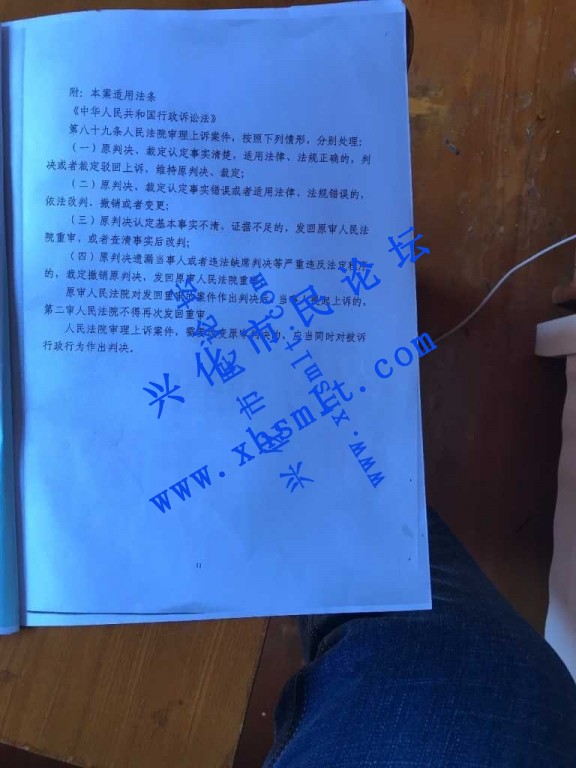 附：本案适用法条
《中华人民共和国行政诉讼法》
第八十九条人民法院审理上诉案件，按照下列情形，分别处理：
（一）原判决、裁定认定事实清楚，适用法律、法规正确的，判
决或者裁定驳回上诉，维持原判决、裁定；
（二）原判决、裁定认定事实错误或者适用法律、法规错误的，
依法改判、撤销或者变更；
（三）原判决认定基本事实不清、证据不足的，发回原审人民法
院重审，或者查清事实后改判；
（四）原判决遗漏当事人或者违法缺席判决等严重违反法定程序
的，裁定撤销原判决，发回原审人民法院重审
原审人民法院对发回重审的案件作出判决后，当事人提起上诉的，
第二审人民法院不得再次发回重审。
人民法院审理上诉案件，需要改变原审判决的，应当同时对被诉
行政行为作出判决。
11
兴化市民论坛
www.xhsmlt.com